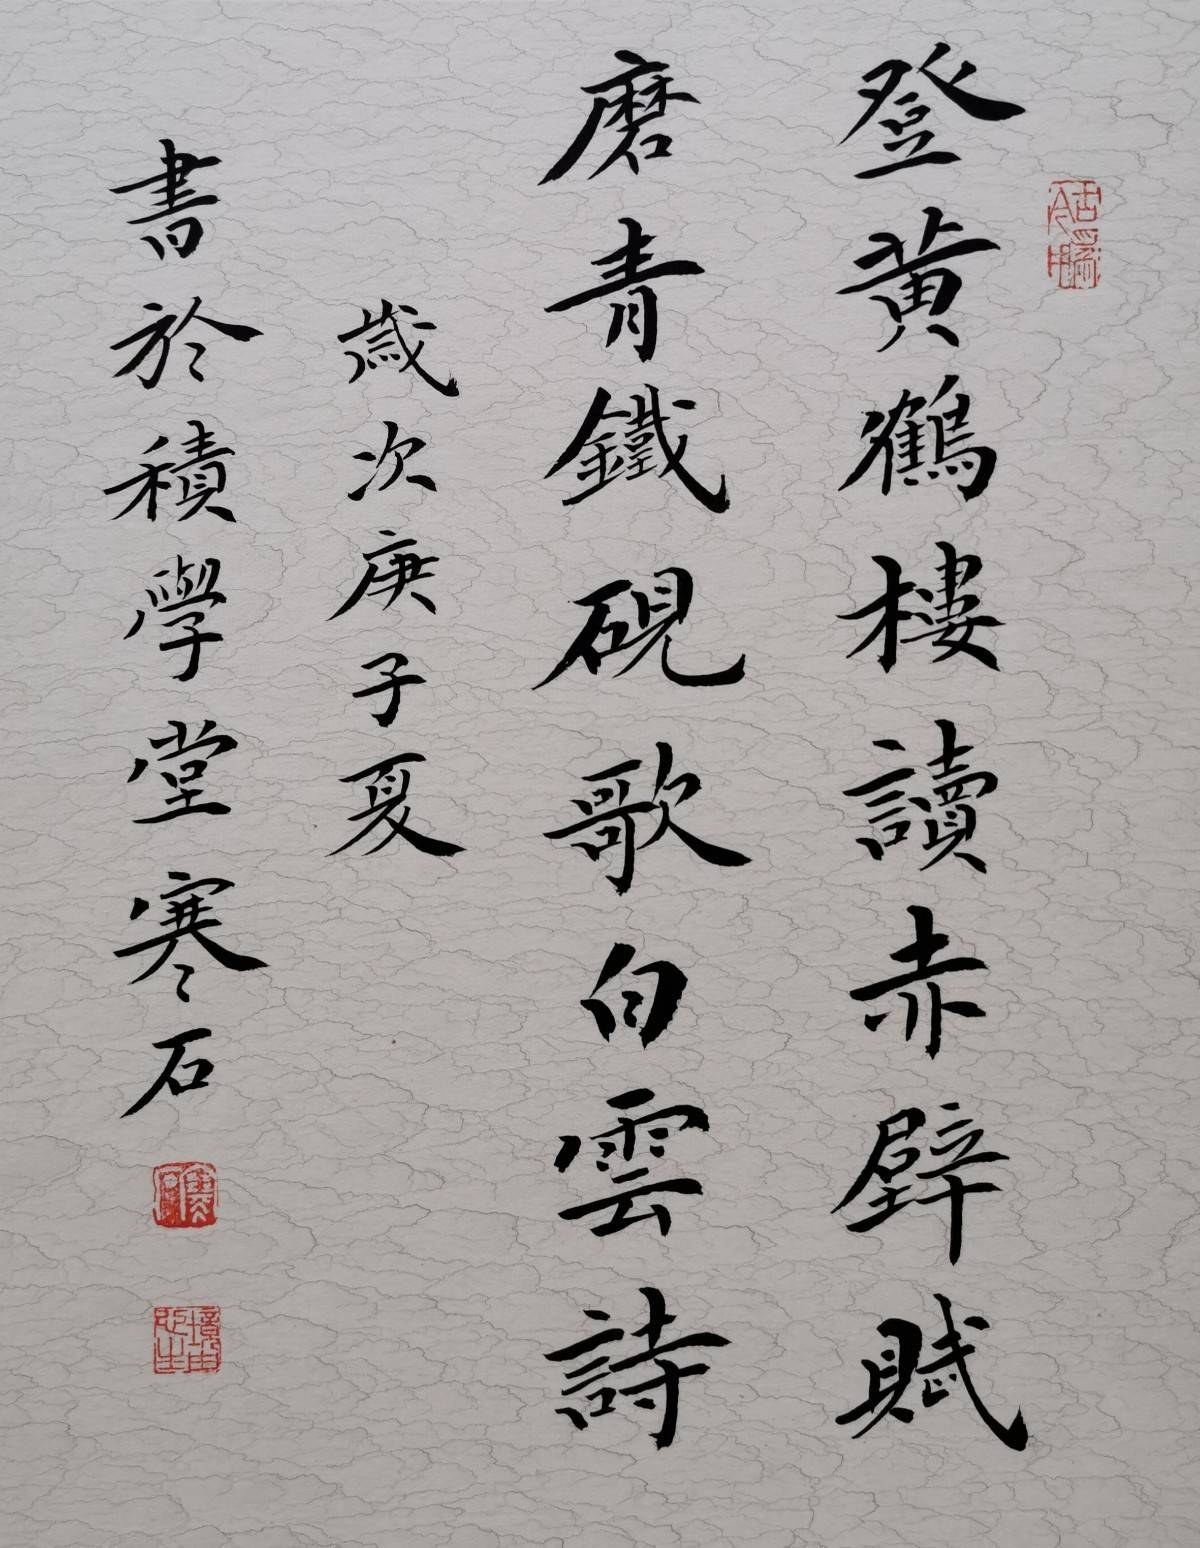 登黄鶴樓讀赤壁賦
磨青鐵硯歌白雲詩
歲次庚子夏
書於積學堂寒石
境由心生